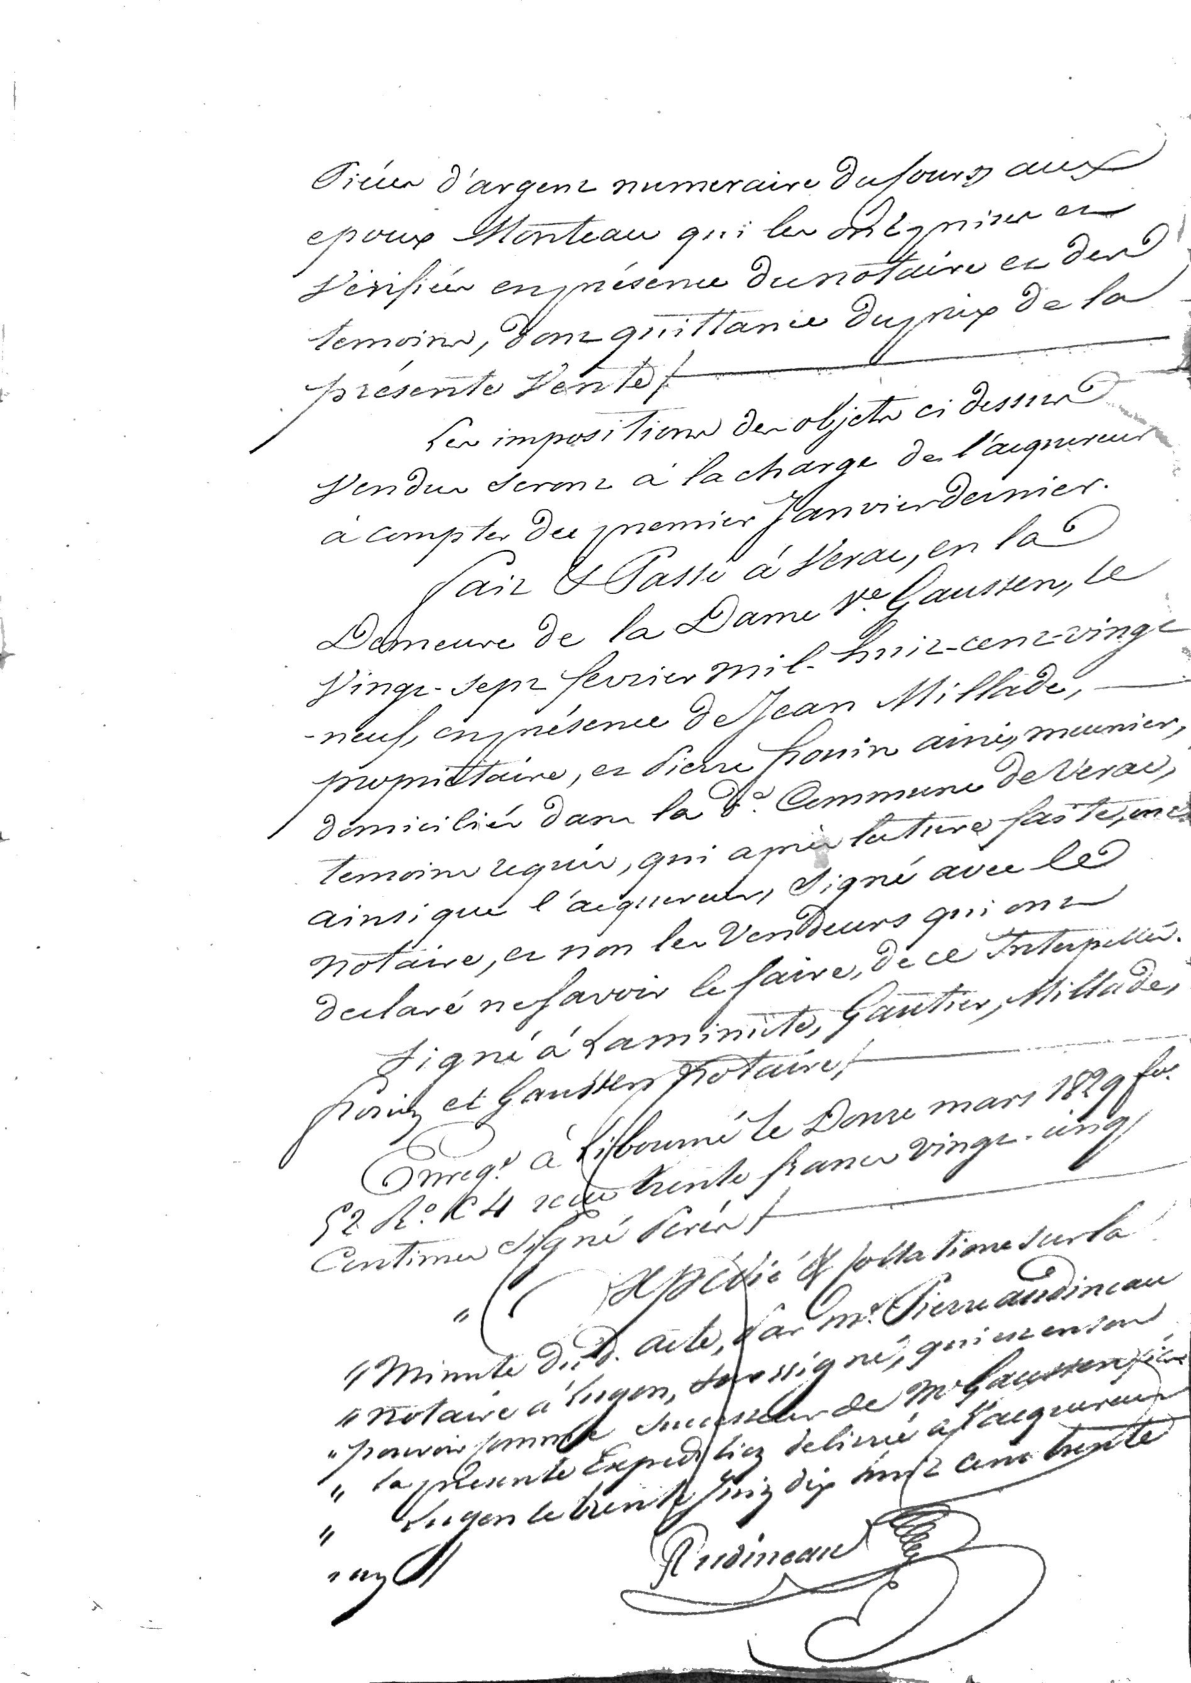 Pièces d'argent numeraire du cours aux
epoux Monteau qui les ont prises et
Vérifiées en présence du notaire et des
temoins, dont quittance du prix de la
présente Vente /
Les impositions des objets ci dessus
Vendus seront à la charge de l'acquereur
à compter du premier Janvier dernier.
fait & Passé à Verac, en la
Demeure de la Dame Ve. Gaussen, le
Vingt-sept fevrier mil-huit-cent-vingt
-neuf, en présence de Jean Millade,
propriétaire, et Pierre ainé, meunier,
domiciliés dans la de. Commune de Verac,
temoins requis, qui après lecture faite, ont
ainsi que l'acquereur, signé avec le
notaire, et non les Vendeurs qui ont
declaré ne savoir le faire, de ce Interpellés.
Signé à La minute, Gautier, Millade,
et Gaussen Notaire /
Enregt. à Libourne le Douze mars 1829 fo.
52 Ro. C 4 reçu trente francs vingt-cinq
Centimes Signé /
" Expédié & sur la
" Minute du d. acte, Par Me. Pierre audineau
" notaire à Lugon, soussigné, qui est en son
" pouvoir comme successeur de Me Gaussen
" la présente Expedition delivrée à l'acquereur
" Lugon le trente Juin dix huit cent trente
" un //
Audineau